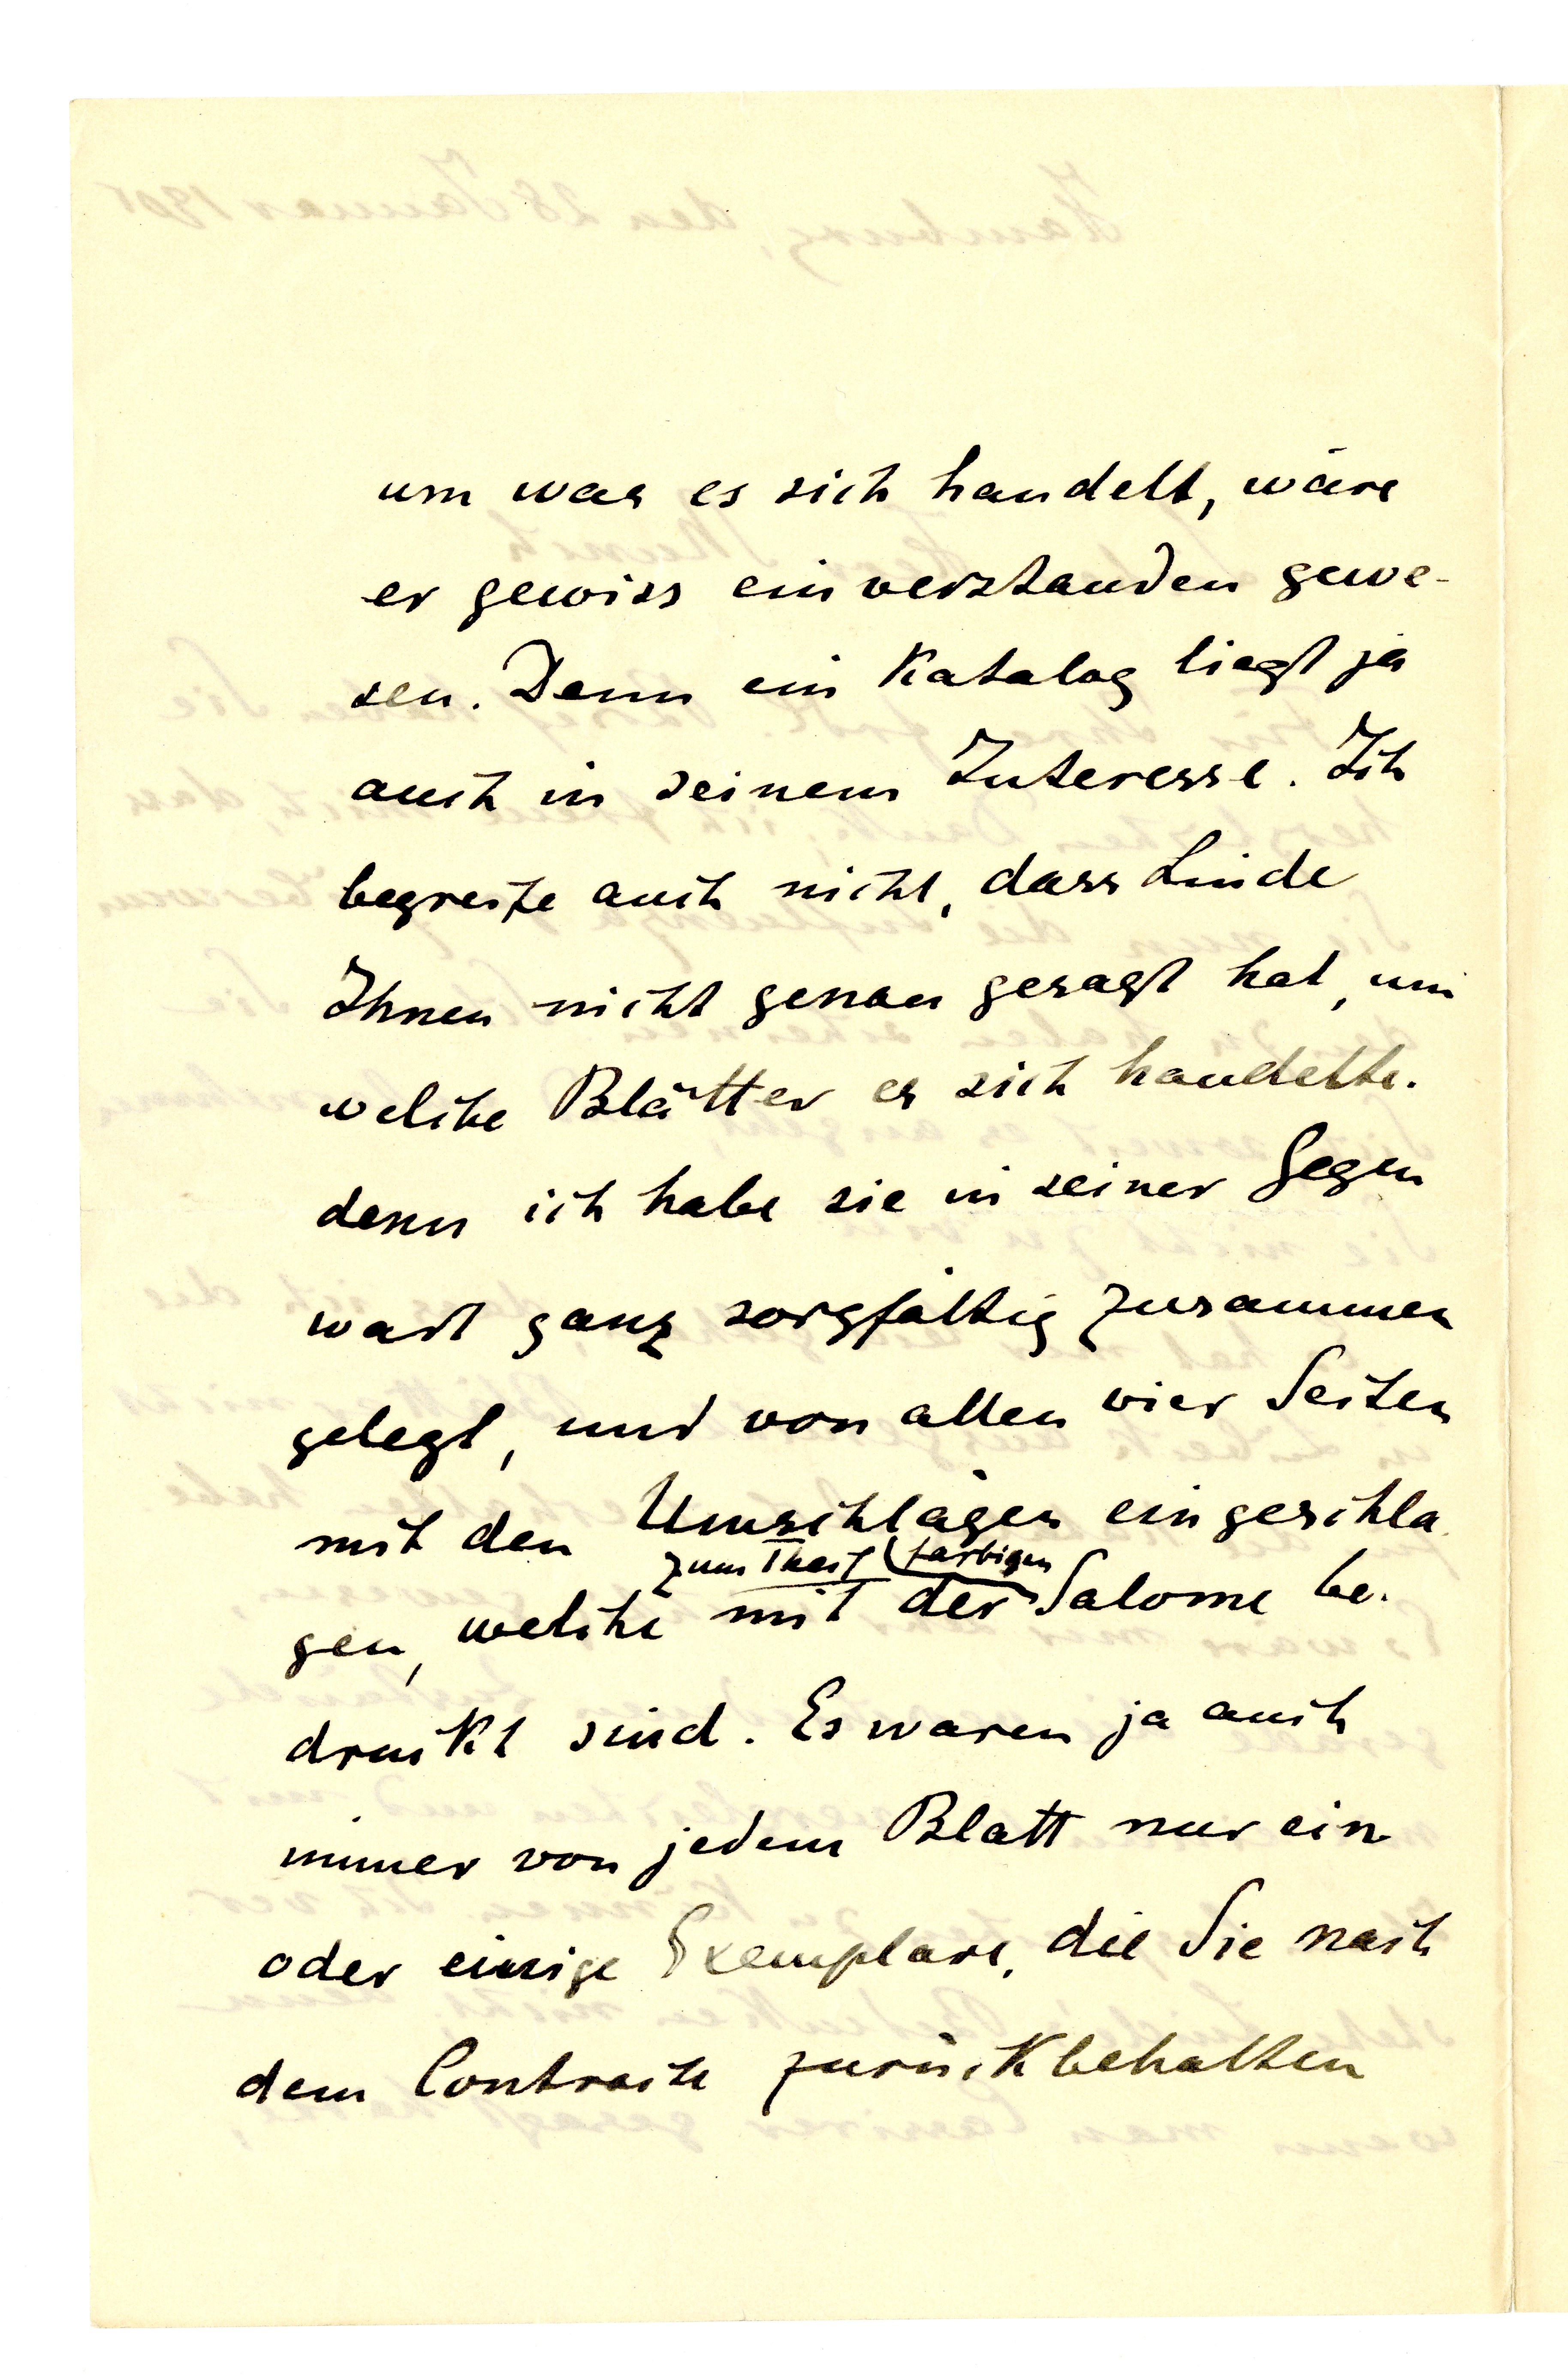 um was es sich handelt, wäre
er gewiss einverstanden gewe-
sen. Denn ein Katalog liegt ja
auch in seinem Interesse. Ich
begreife auch nicht, dass Linde
Ihnen nicht genau gesagt hat, um
welche Blätter es sich handelte.
denn ich habe sie in seiner Gegen
wart ganz sorgfältig zusammen
gelegt, und von allen vier Seiten
mit den Umschlägen eingeschla
zum Theil farbigen
gen, welche mit der Salome be-
druckt sind. Es waren ja auch
immer von jedem Blatt nur ein
oder einige Exemplare, die Sie nach
dem Contracte zurückbehalten